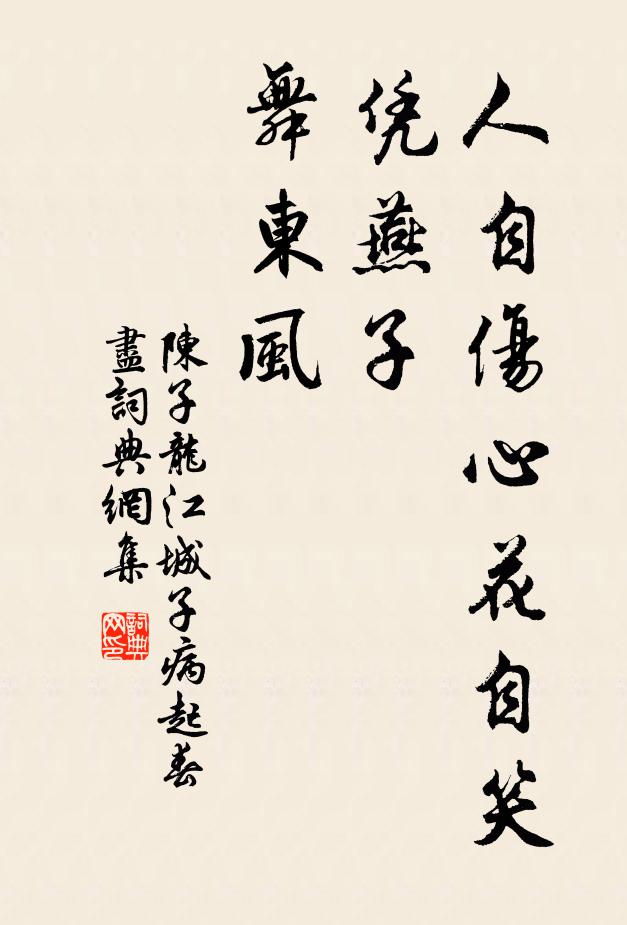 人自傷心花自笑
凭燕子
舞東風
陳子龍江城子病起春
盡詞典網集
詞典网印